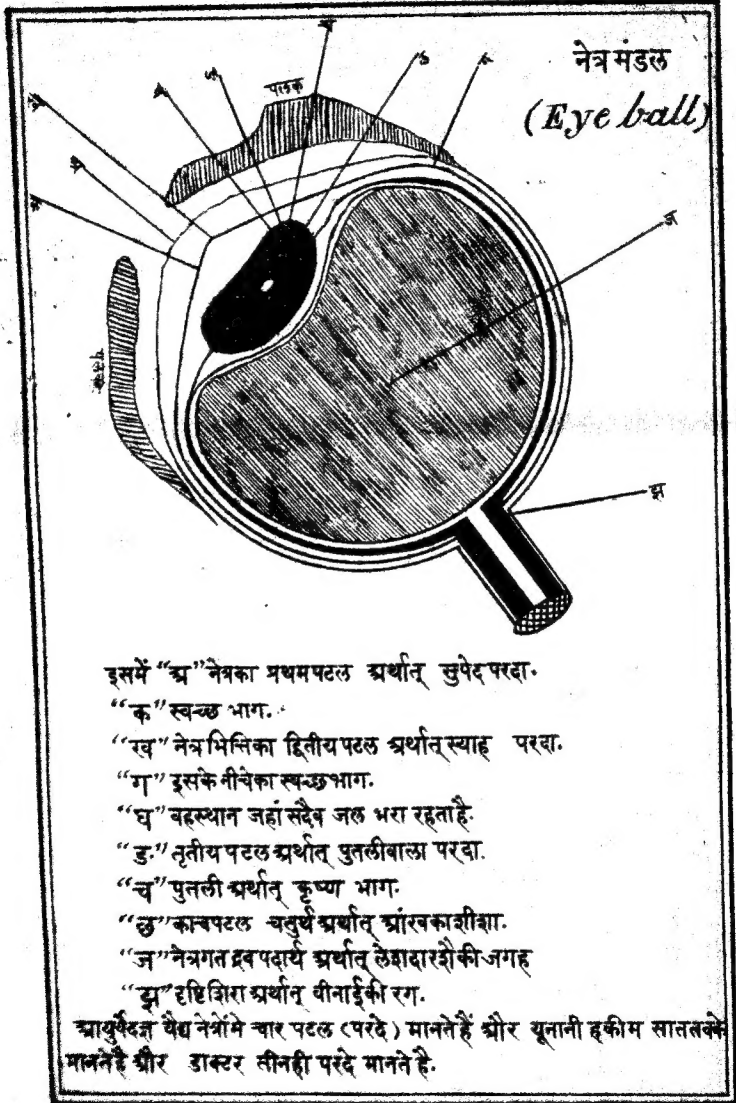 नेत्र मंडल
(Eye ball)
पलक
पलक
ज
झ
इसमें “अ” नेत्रका प्रथमपटल अर्थात् सुपेद परदा.
“क” स्वच्छ भाग.
“ख” नेत्रभित्तिका द्वितीय पटल अर्थात् स्याह परदा.
“ग” इसके नीचेका स्वच्छभाग.
“घ” वहस्थान जहां सदैव जल भरा रहताहै.
“ङ” तृतीय पटल अर्थात् पुतलीवाला परदा.
“च” पुतली अर्थात् कृष्ण भाग.
“छ” काचपटल चतुर्थ अर्थात् आंखकाशीशा.
“ज” नेत्रगत द्रव पदार्थ अर्थात् लेशदारशैकी जगह
“झ” दृष्टिशिरा अर्थात् वीनाईकी रग.
आयुर्वेदज्ञ वैद्य नेत्रोंमे चार पटल (परदे) मानतेहैं और यूनानी हकीम साततबके
मानतेहै और डाक्टर तीनही परदे मानते है.